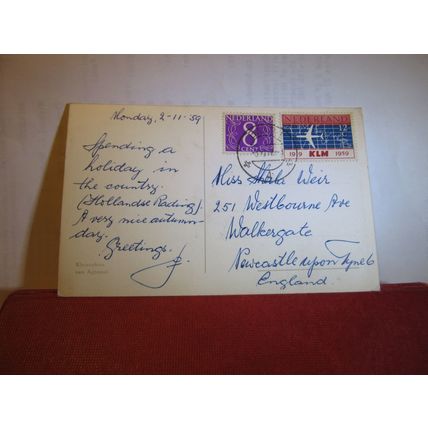 Monday, 2-11-59
Spending a
holiday in
the country.
(Hollandse Rading).
A very nice autumn-
day.
Greetings.
J.
NEDERLAND
8
CENT
NEDERLAND
1919 KLM 1959
Miss Weir
251 Westbourne Ave
Walkergate
Newcastle upon Tyne 6
England.
van Agtmaal